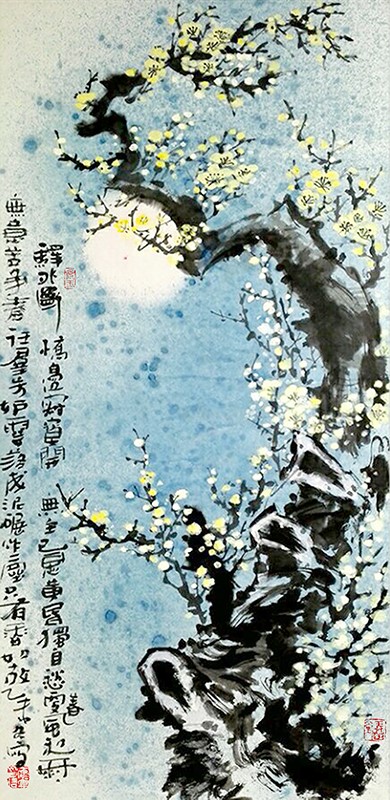 驛外斷橋邊寂寞開無主已是黃昏獨自愁更著風和雨
無意苦爭春一任羣芳妒零落成泥碾作塵只有香如故乙未